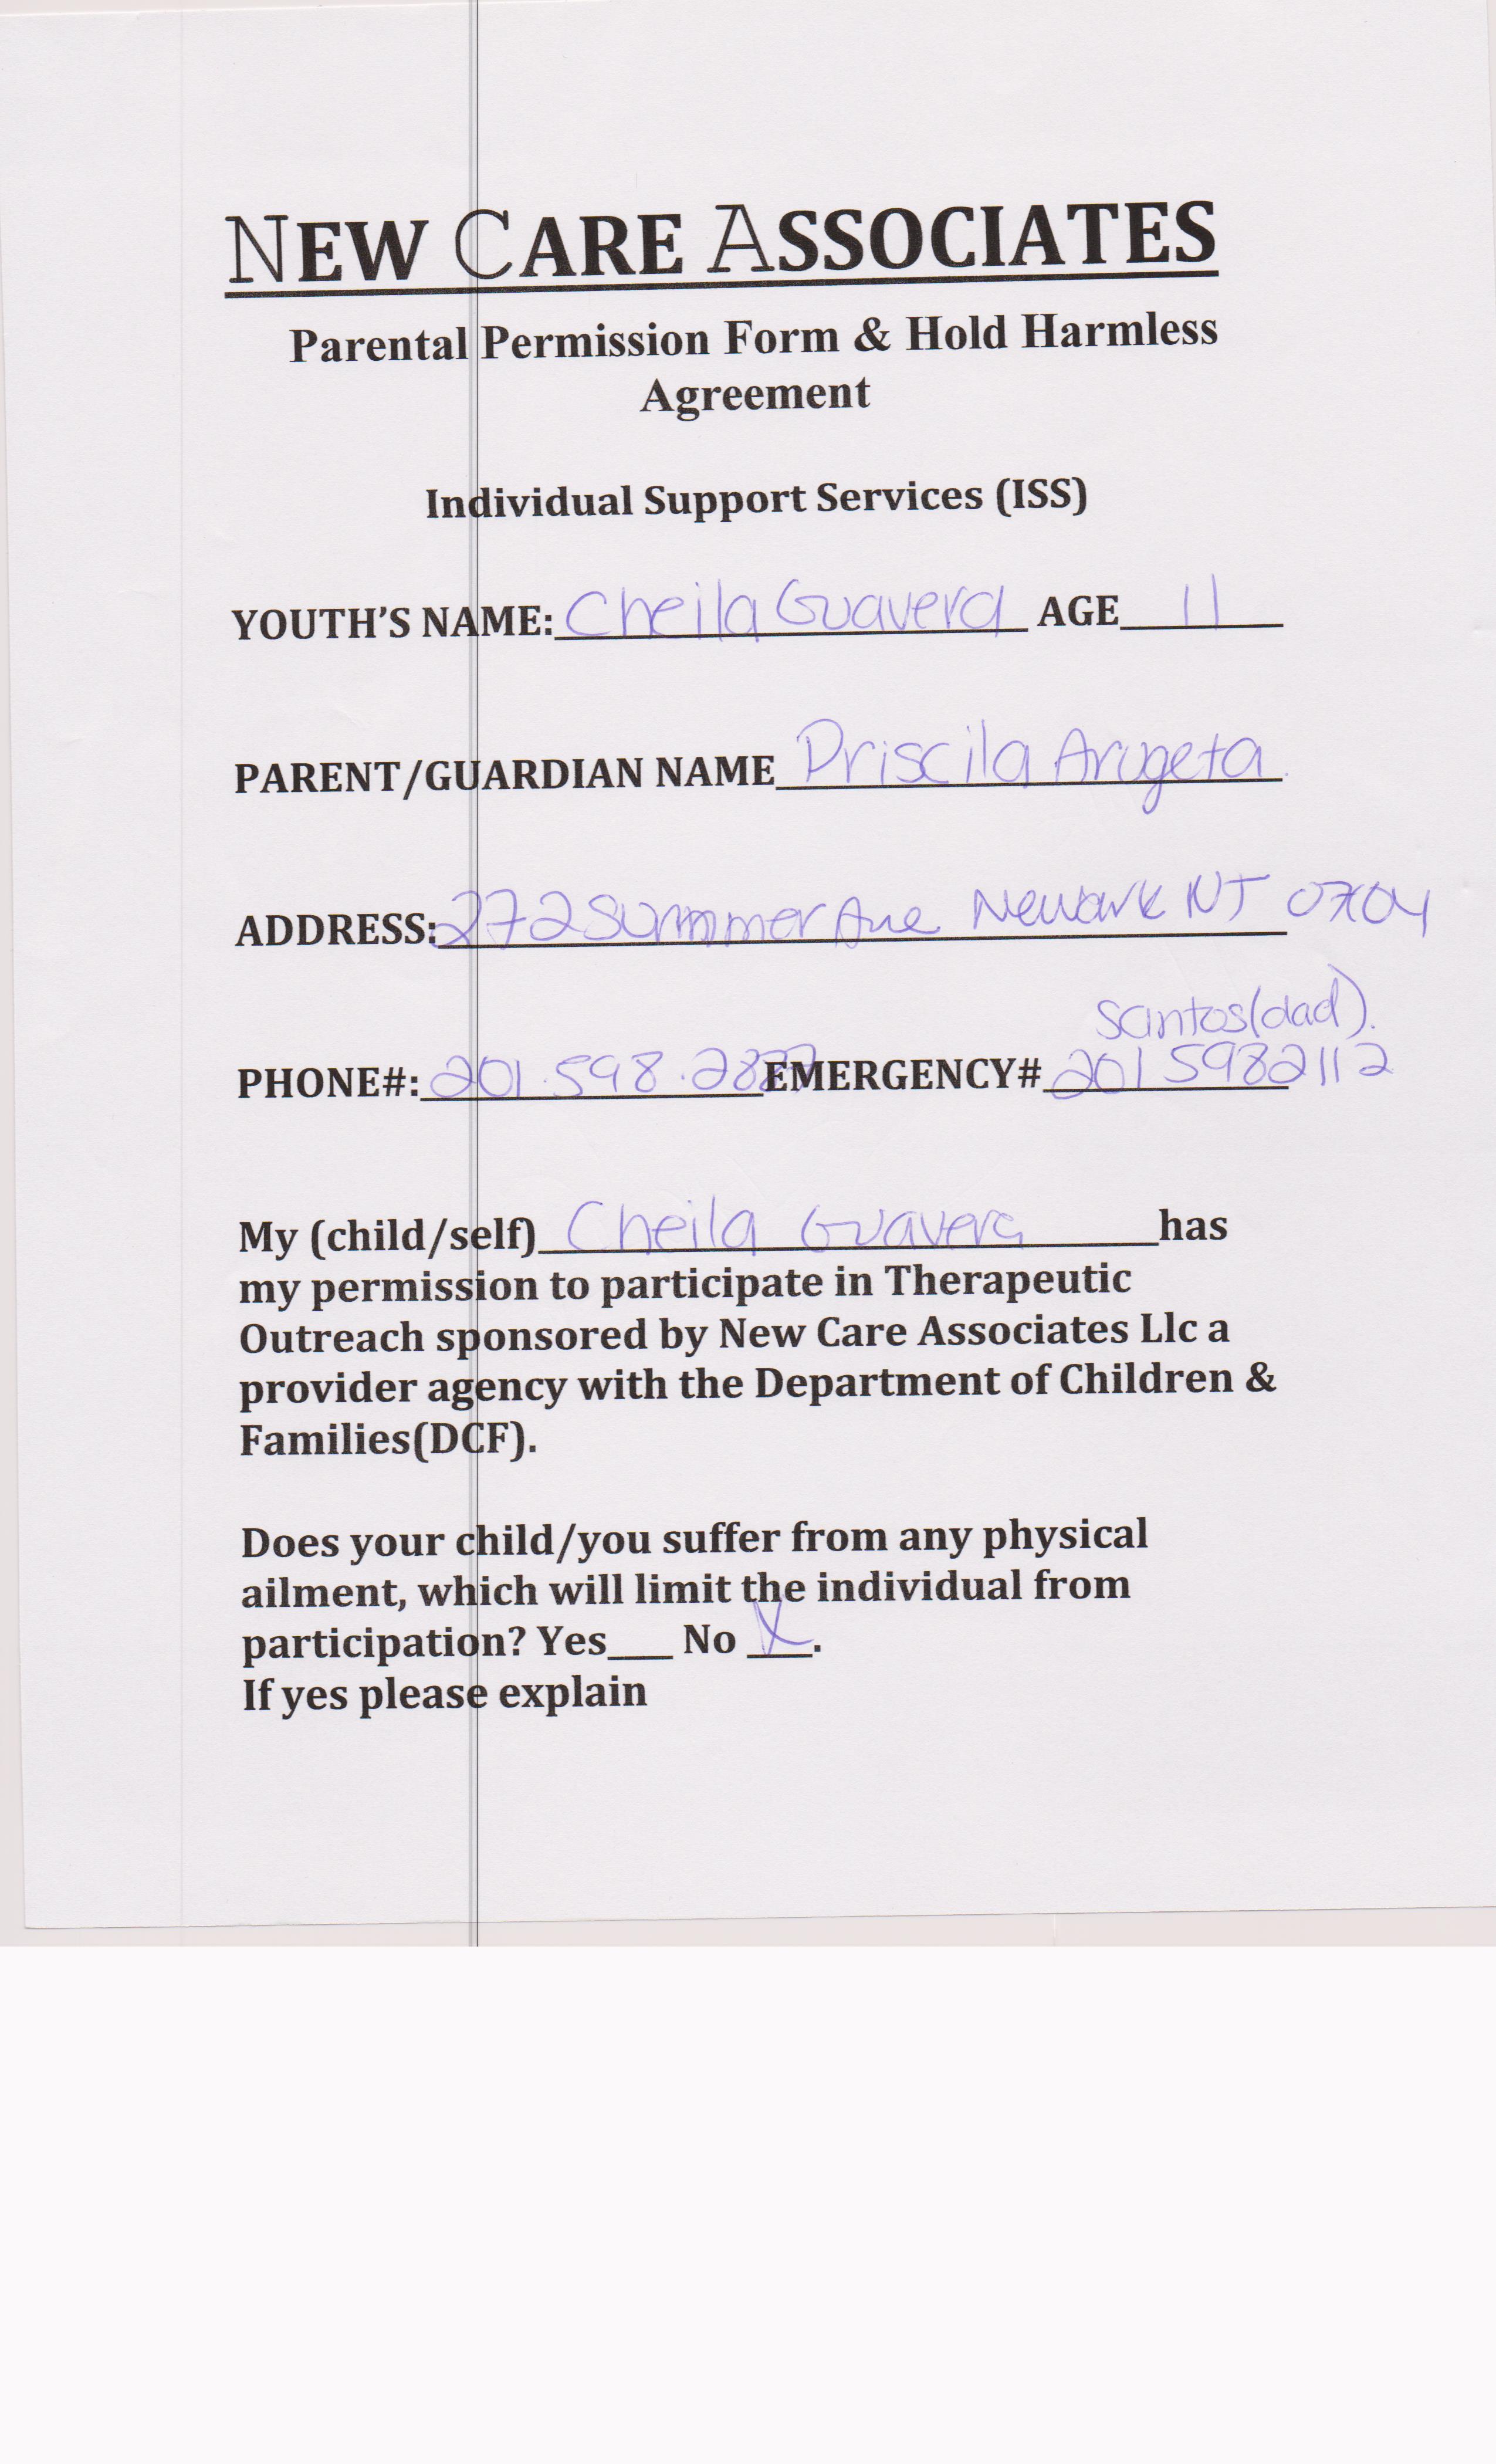 NEW CARE ASSOCIATES
Parental Permission Form & Hold Harmless
Agreement
Individual Support Services (ISS)
YOUTH'S NAME: Cheila Guavera AGE 11
PARENT/GUARDIAN NAME Priscila Arugeta
ADDRESS: 272 Summer Ave Newark NJ 07104
Santos (dad).
PHONE#: 201.598. EMERGENCY# 201 5982112
My (child/self) Cheila Guavera has
my permission to participate in Therapeutic
Outreach sponsored by New Care Associates Llc a
provider agency with the Department of Children &
Families(DCF).
Does your child/you suffer from any physical
ailment, which will limit the individual from
participation? Yes___ No X.
If yes please explain